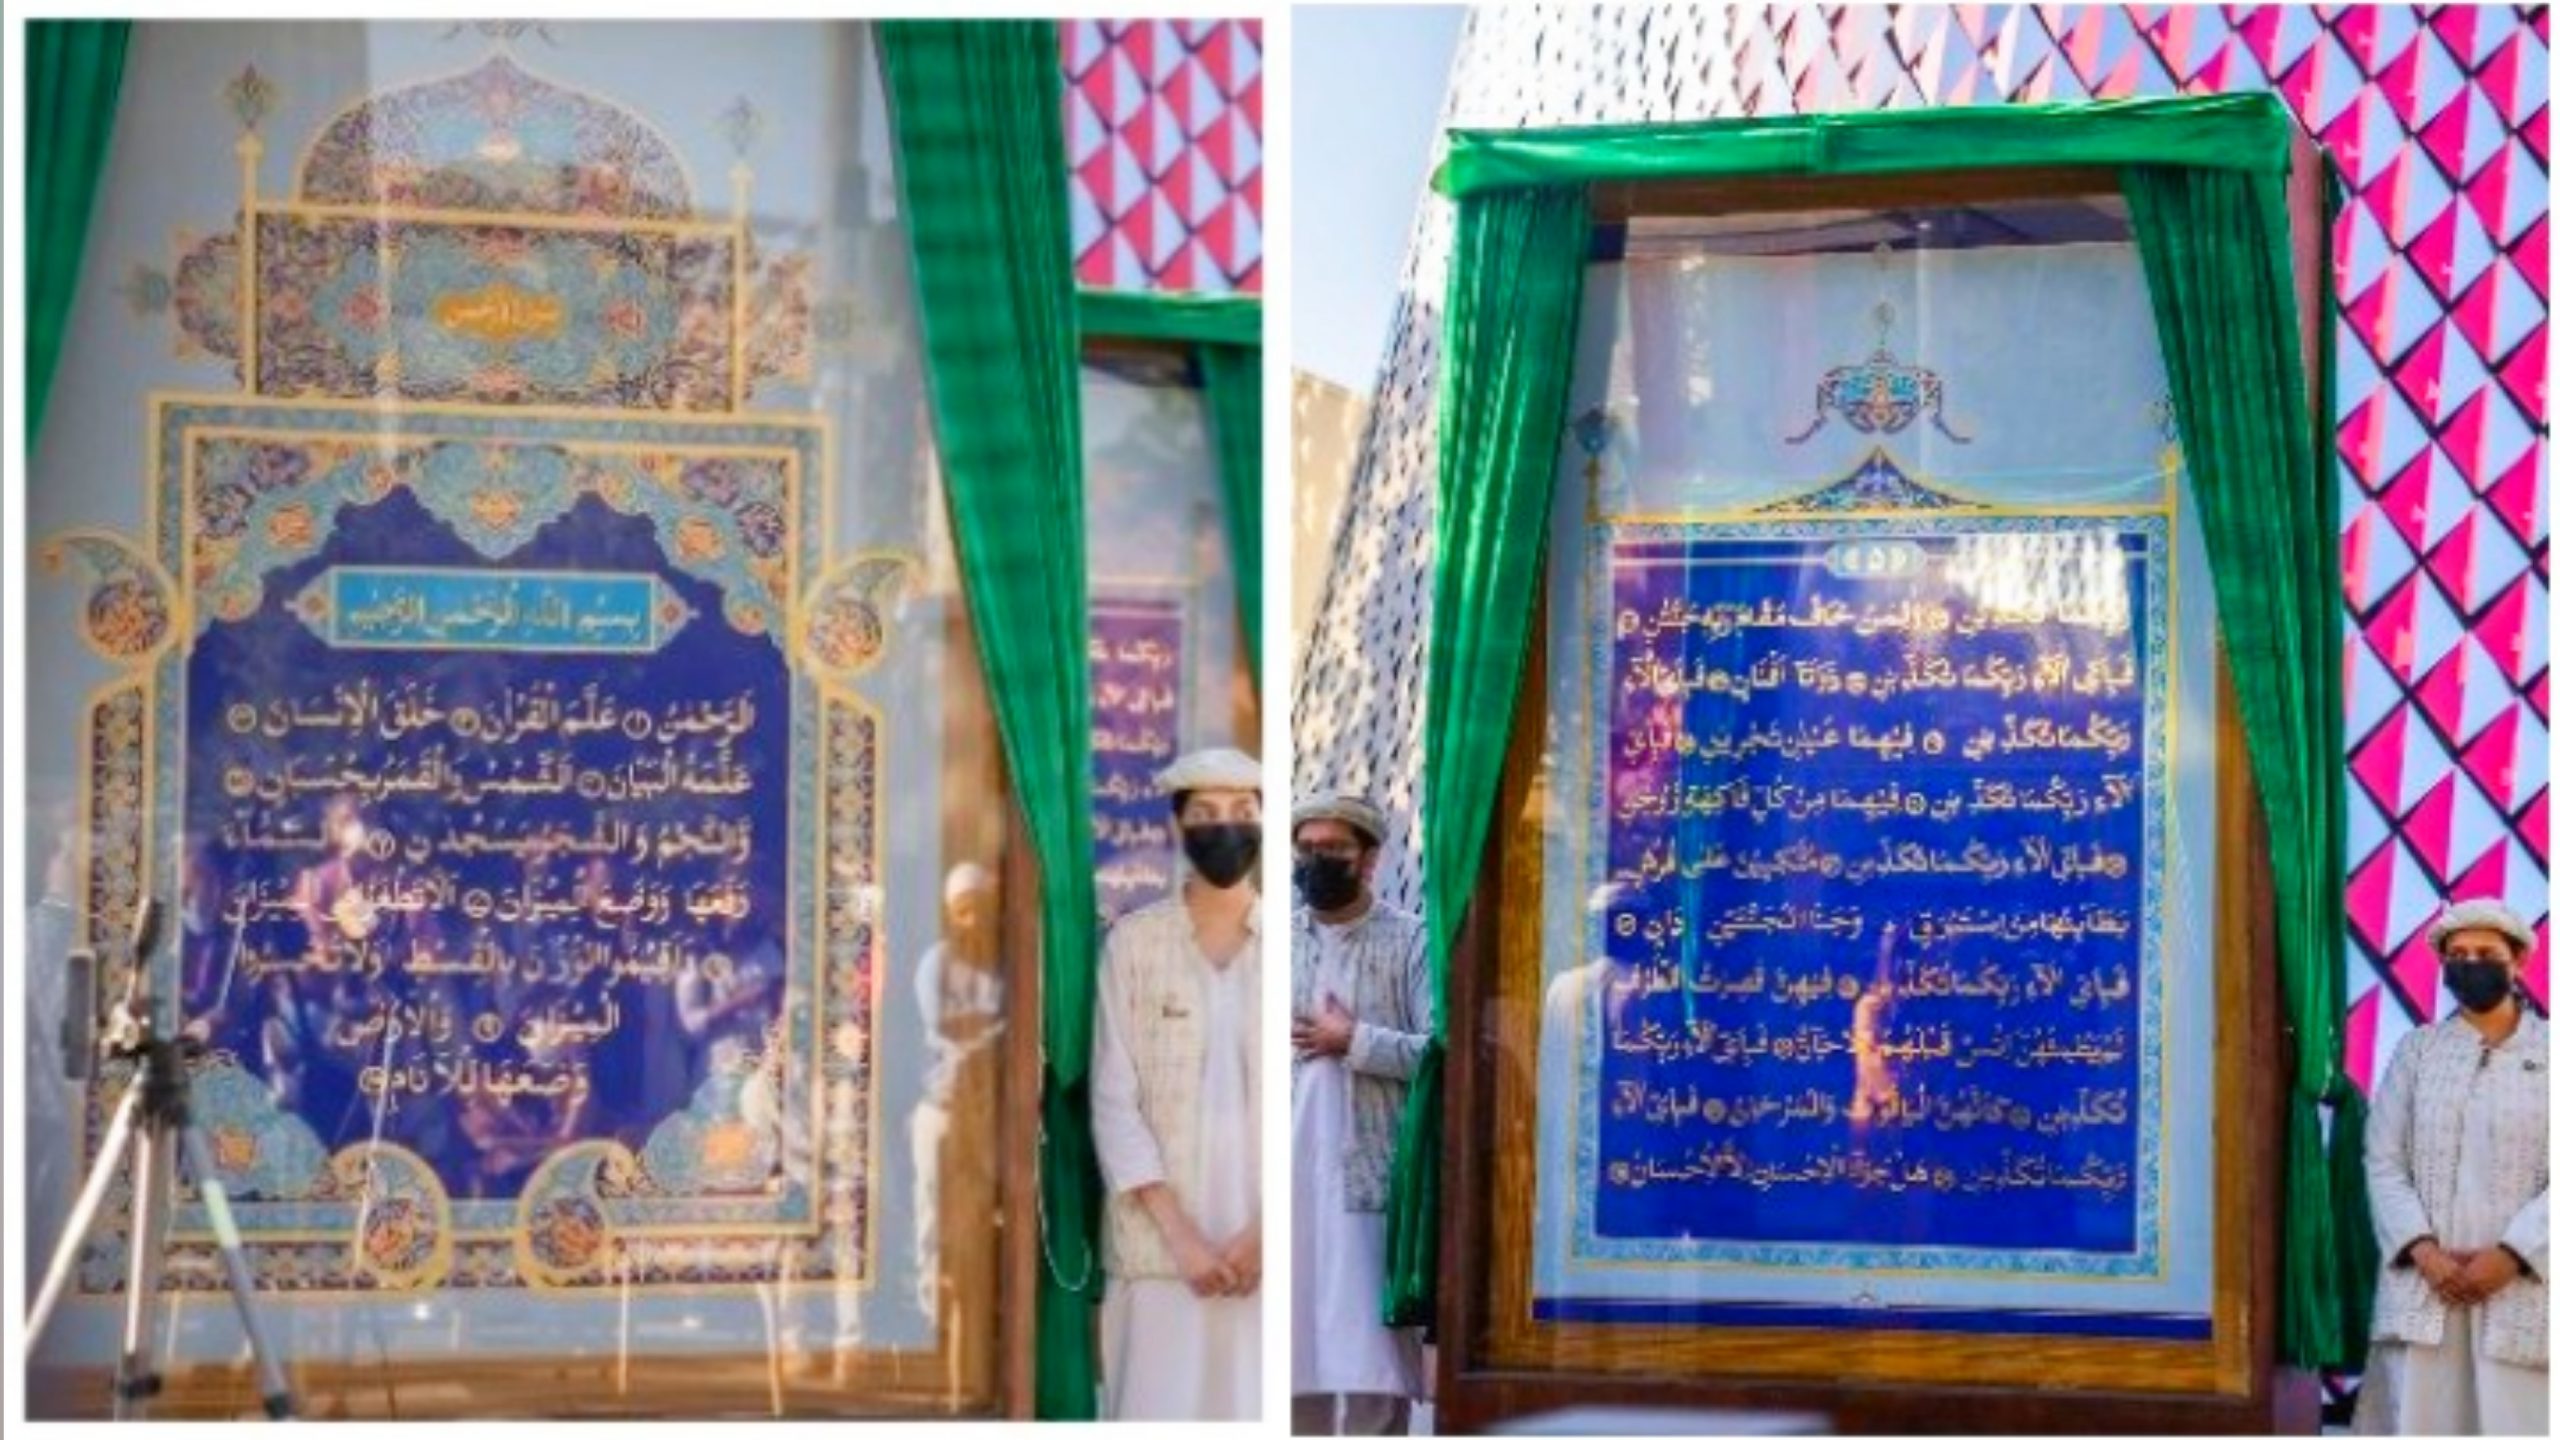 سورة الرحمن
بِسْمِ اللهِ الرَّحْمٰنِ الرَّحِيْمِ
اَلرَّحْمٰنُ ۝۱ عَلَّمَ الْقُرْاٰنَ ۝۲ خَلَقَ الْاِنْسَانَ ۝۳
عَلَّمَهُ الْبَيَانَ ۝۴ اَلشَّمْسُ وَالْقَمَرُ بِحُسْبَانٍ ۝۵
وَّالنَّجْمُ وَالشَّجَرُ يَسْجُدٰنِ ۝۶ وَالسَّمَآءَ
رَفَعَهَا وَوَضَعَ الْمِيْزَانَ ۝۷ اَلَّا تَطْغَوْا فِى الْمِيْزَانِ
۝۸ وَاَقِيْمُوا الْوَزْنَ بِالْقِسْطِ وَلَا تُخْسِرُوا
الْمِيْزَانَ ۝۹ وَالْاَرْضَ
وَضَعَهَا لِلْاَنَامِ ۝۱۰
رَبِّكُمَا
فَبِاَىِّ
رَبِّكُمَا
﴿۵﴾
رَبِّكُمَا تُكَذِّبٰنِ ۝ وَلِمَنْ خَافَ مَقَامَ رَبِّهٖ جَنَّتٰنِ ۝
فَبِاَىِّ اٰلَآءِ رَبِّكُمَا تُكَذِّبٰنِ ۝ ذَوَاتَآ اَفْنَانٍ ۝ فَبِاَىِّ اٰلَآءِ
رَبِّكُمَا تُكَذِّبٰنِ ۝ فِيْهِمَا عَيْنٰنِ تَجْرِيٰنِ ۝ فَبِاَىِّ
اٰلَآءِ رَبِّكُمَا تُكَذِّبٰنِ ۝ فِيْهِمَا مِنْ كُلِّ فَاكِهَةٍ زَوْجٰنِ
۝ فَبِاَىِّ اٰلَآءِ رَبِّكُمَا تُكَذِّبٰنِ ۝ مُتَّكِـِٕيْنَ عَلٰى فُرُشٍۢ
بَطَآىِٕنُهَا مِنْ اِسْتَبْرَقٍ وَجَنَا الْجَنَّتَيْنِ دَانٍ ۝
فَبِاَىِّ اٰلَآءِ رَبِّكُمَا تُكَذِّبٰنِ ۝ فِيْهِنَّ قٰصِرٰتُ الطَّرْفِ
لَمْ يَطْمِثْهُنَّ اِنْسٌ قَبْلَهُمْ وَلَا جَآنٌّ ۝ فَبِاَىِّ اٰلَآءِ رَبِّكُمَا
تُكَذِّبٰنِ ۝ كَاَنَّهُنَّ الْيَاقُوْتُ وَالْمَرْجَانُ ۝ فَبِاَىِّ اٰلَآءِ
رَبِّكُمَا تُكَذِّبٰنِ ۝ هَلْ جَزَآءُ الْاِحْسَانِ اِلَّا الْاِحْسَانُ ۝